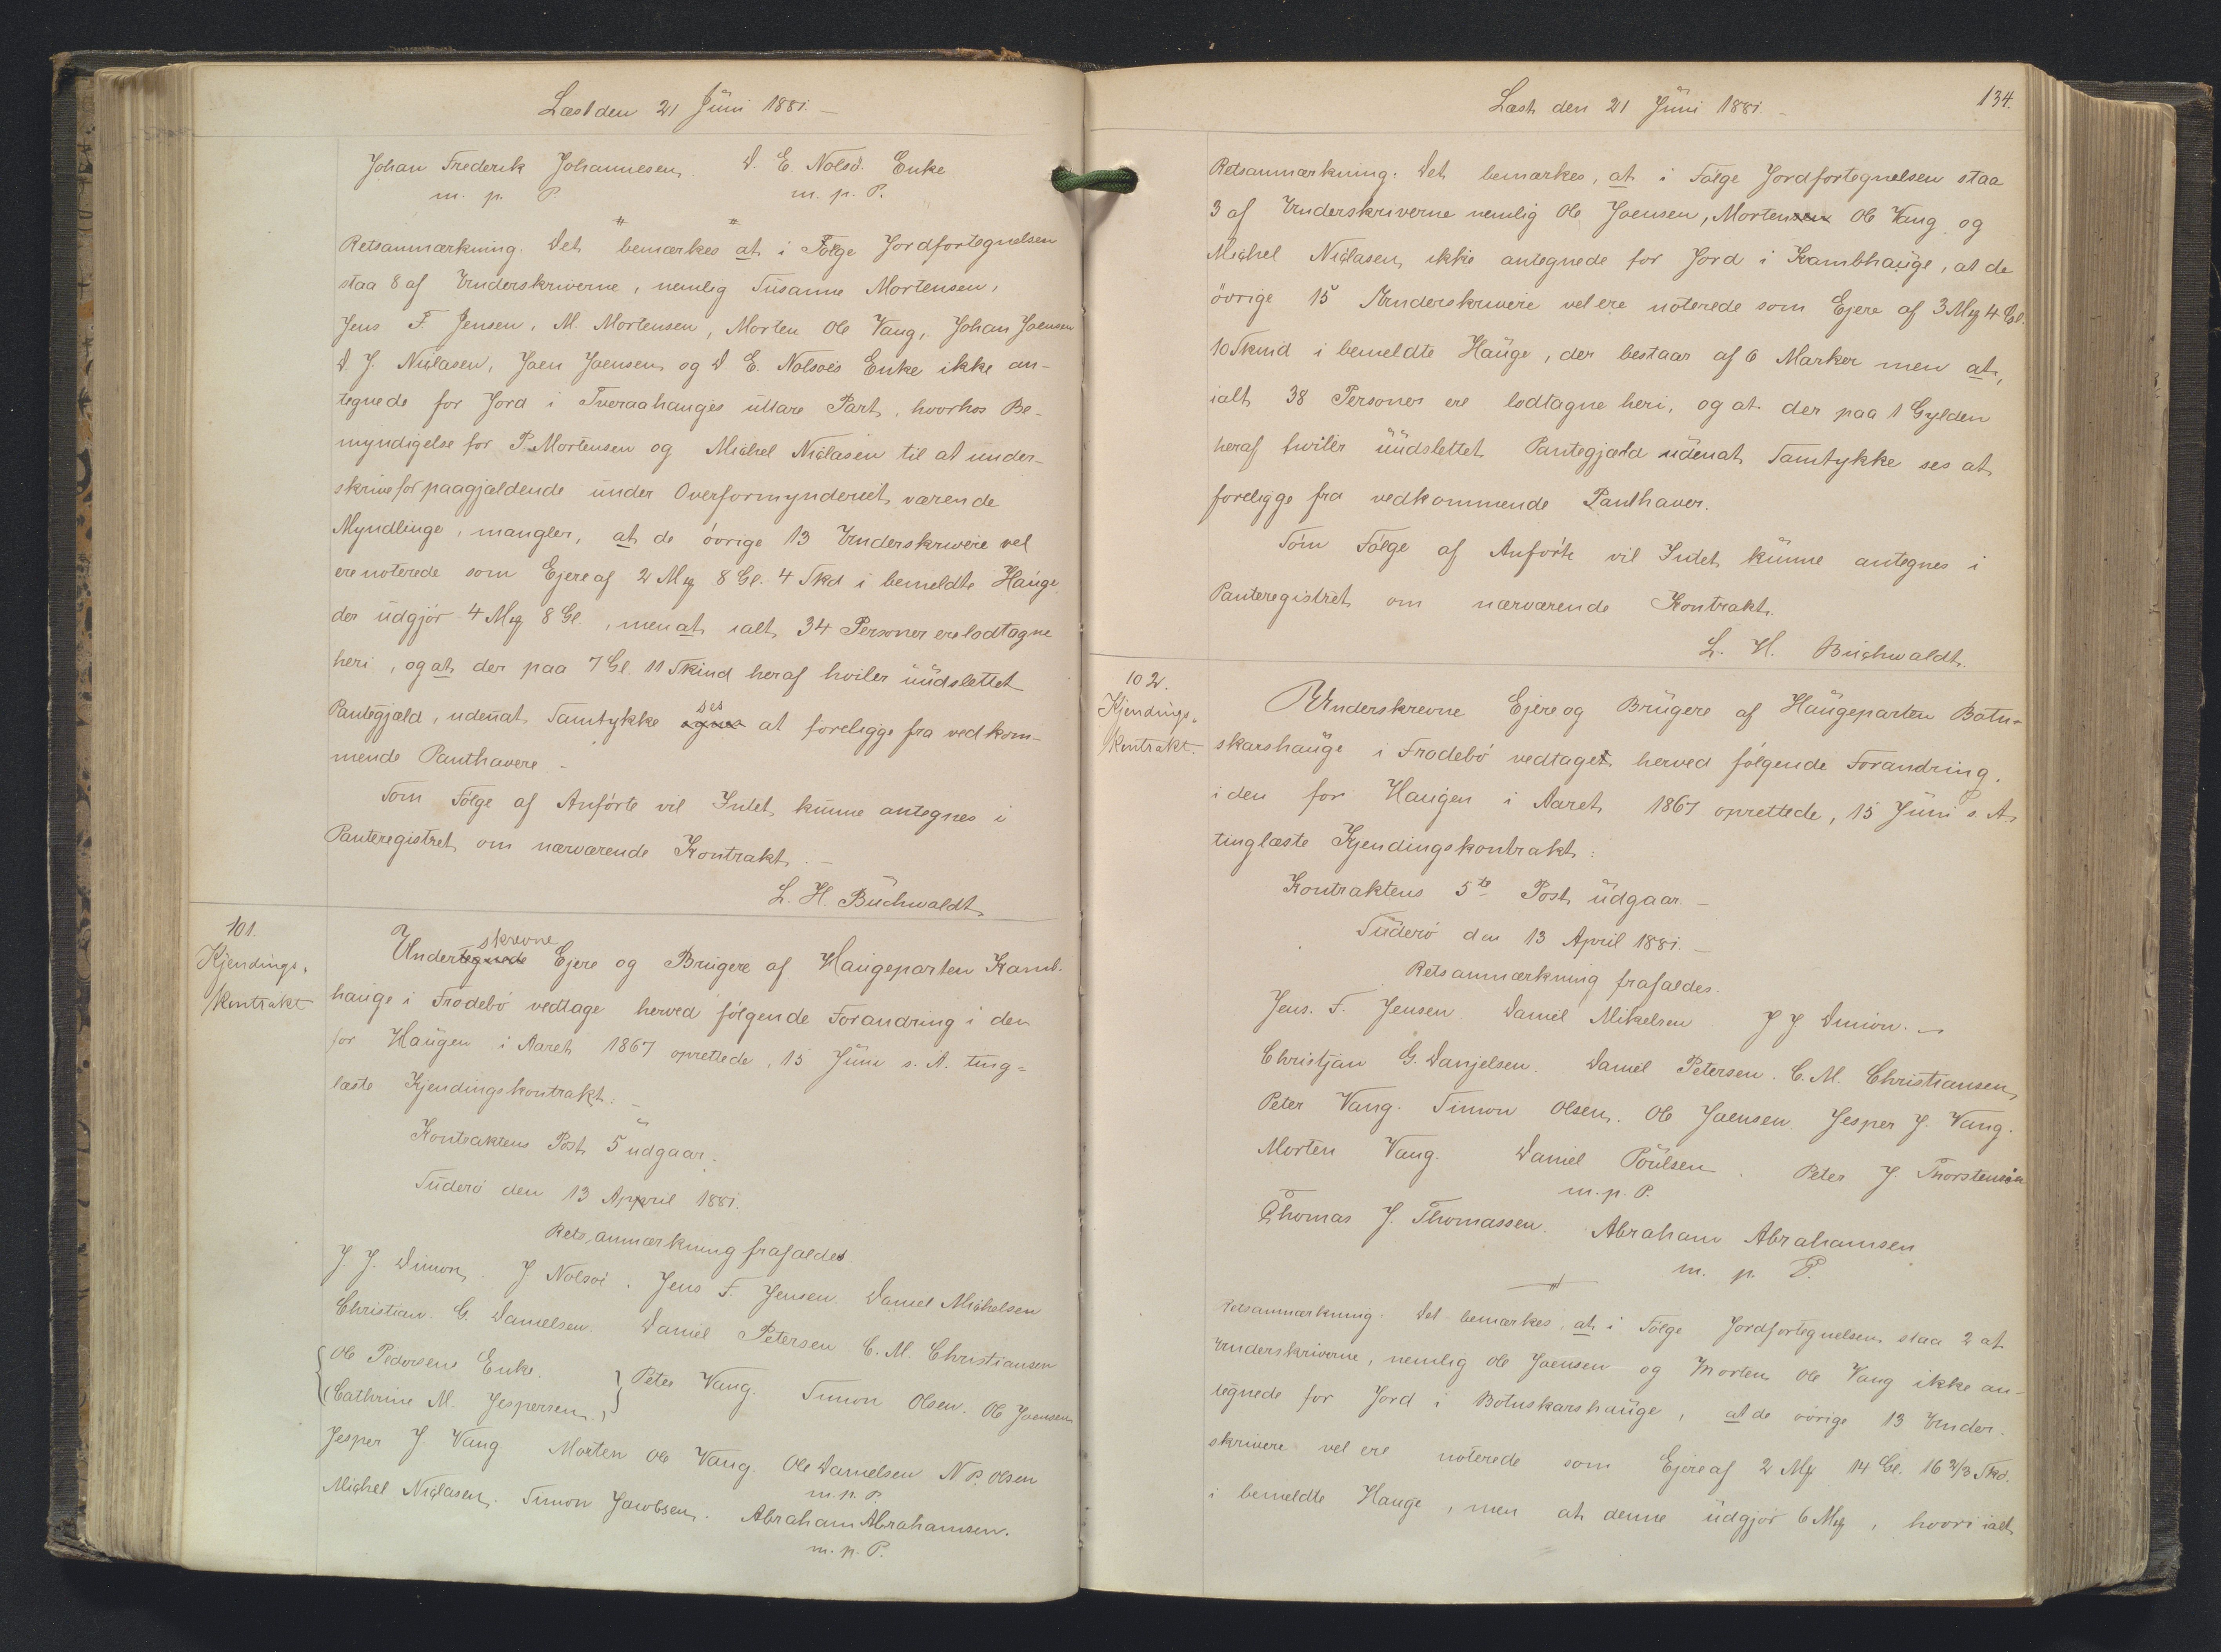 Læst den 21 Juni 1881. —
Johan Frederik Johannesen. D. E. Nolsö. Enke
m. p. P. m. p. P.
Retsanmærkning. Det bemærkes at i Følge Jordfortegnelsen
staa 8 af Underskriverne, nemlig Susanne Mortensen,
Jens F Jensen, M. Mortensen, Morten Ole Vang, Johan Joensen
D. J. Niclasen, Joen Joensen og D. E. Nolsoes Enke ikke an-
tegnede for Jord i Tveraahauges ultare Part, hvorhos Be-
myndigelse for P. Mortensen og Michel Niclasen til at under-
skrive for paagjældende under Overformynderiet værende
Myndlinge, mangler, at de övrige 13 Underskrivere vel
ere noterede som Ejere af 2 Mg 8 Gl. 4 Skd i bemeldte Hauge
der udgjör 4 Mg 8 Gl., men at ialt 34 Personer ere lodtagne
heri, og at der paa 7 Gl. 11 Skind heraf hviler uudslettet
Pantegjæld, udenat Samtykke ses at foreligge fra vedkom-
mende Panthavere. —
Som Følge af Anførte vil Intet kunne antegnes i
Panteregistret om nærværende Kontrakt. —
L. H. Buchwaldt
101.
Kjendings-
kontrakt
skrevne
Undertegnede Ejere og Brugere af Haugeparten Kamb-
hauge i Frodebö vedtage herved følgende Forandring i den
for Haugen i Aaret 1867 oprettede, 15 Juni s. A. ting-
læste Kjendingskontrakt: —
Kontraktens Post 5 udgaar.
Suderö den 13 April 1881.
Retsanmærkning frafaldes
J. J. Dimon. J Nolsoe. Jens F. Jensen Daniel Michelsen
Christian G. Danielsen. Daniel Petersen C. M. Christiansen
Ole Pedersens Enke.
(Cathrine M. Jespersen.) Peter Vang. Simon Olsen. Ole Joensen
Jesper J Vang Morten Ole Vang. Ole Danielsen N. P. Olsen
m. p. P.
Michel Niclasen. Simon Jacobsen. Abraham Abrahamsen.
m. p. P.
Læst den 21 Juni 1881. —
134.
Retsanmærkning. Det bemærkes, at i Følge Jordfortegnelsen staa
3 af Underskriverne nemlig Ole Joensen, Mortensen Ole Vang og
Michel Niclasen, ikke antegnede for Jord i Kambhauge, at de
övrige 15 Underskrivere vel ere noterede som Ejere af 3 Mg 4 Gl.
10 Skind i bemeldte Hauge, der bestaar af 6 Marker men at,
ialt 38 Personer ere lodtagne heri, og at der paa 1 Gylden
heraf hviler uudslettet Pantegjæld udenat Samtykke ses at
foreligge fra vedkommende Panthaver.
Som Følge af Anførte vil Intet kunne antegnes i
Panteregistret om nærværende Kontrakt.
L. H. Buchwaldt.
102.
Kjendings-
kontrakt.
Underskrevne Ejere og Brugere af Haugeparten Botn-
skarshauge i Frodebö vedtaget herved følgende Forandring.
i den for Haugen i Aaret 1867 oprettede, 15 Juni s. A.
tinglæste Kjendingskontrakt:
Kontraktens 5te Post udgaar. —
Suderö den 13 April 1881. —
Retsanmærkning frafaldes.
Jens. F. Jensen. Daniel Mikelsen J J Dimon. —
Christjan G. Danjelsen. Daniel Petersen. C. M. Christiansen
Peter Vang. Simon Olsen. Ole Joensen. Jesper J. Vang.
Morten Vang. Daniel Poulsen. Peter J. Thorstensen
m. p. P.
Thomas J. Thomassen. Abraham Abrahamsen
m. p. P.
Retsanmærkning. Det bemærkes, at i Følge Jordfortegnelsen staa 2 af
Underskriverne, nemlig Ole Joensen og Morten Ole Vang ikke an-
tegnede for Jord i Botnskarshauge, at de övrige 13 Under-
skrivere vel ere noterede som Ejere af 2 Mg 14 Gl. 16 2/3 Skd.
i bemeldte Hauge, men at denne udgjör 6 Mg, hvori ialt